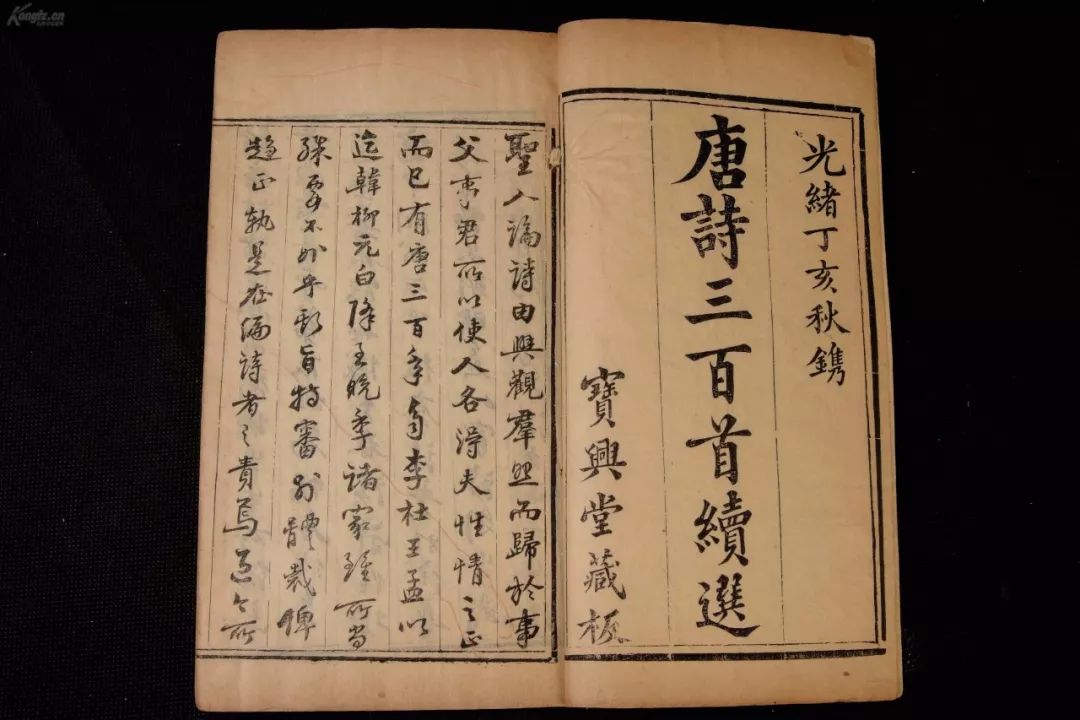 Kongfz.cn
光緒丁亥秋鐫
唐詩三百首續選
寶興堂藏板
聖人論詩由興觀羣怨而歸於事
父事君所以使人各得夫性情之正
而已有唐三百年自李杜王孟以
迄韓柳元白降至晚季諸家雖所尚
殊要不外乎斯旨特審別體裁俾
趨正執是在編詩者之焉所